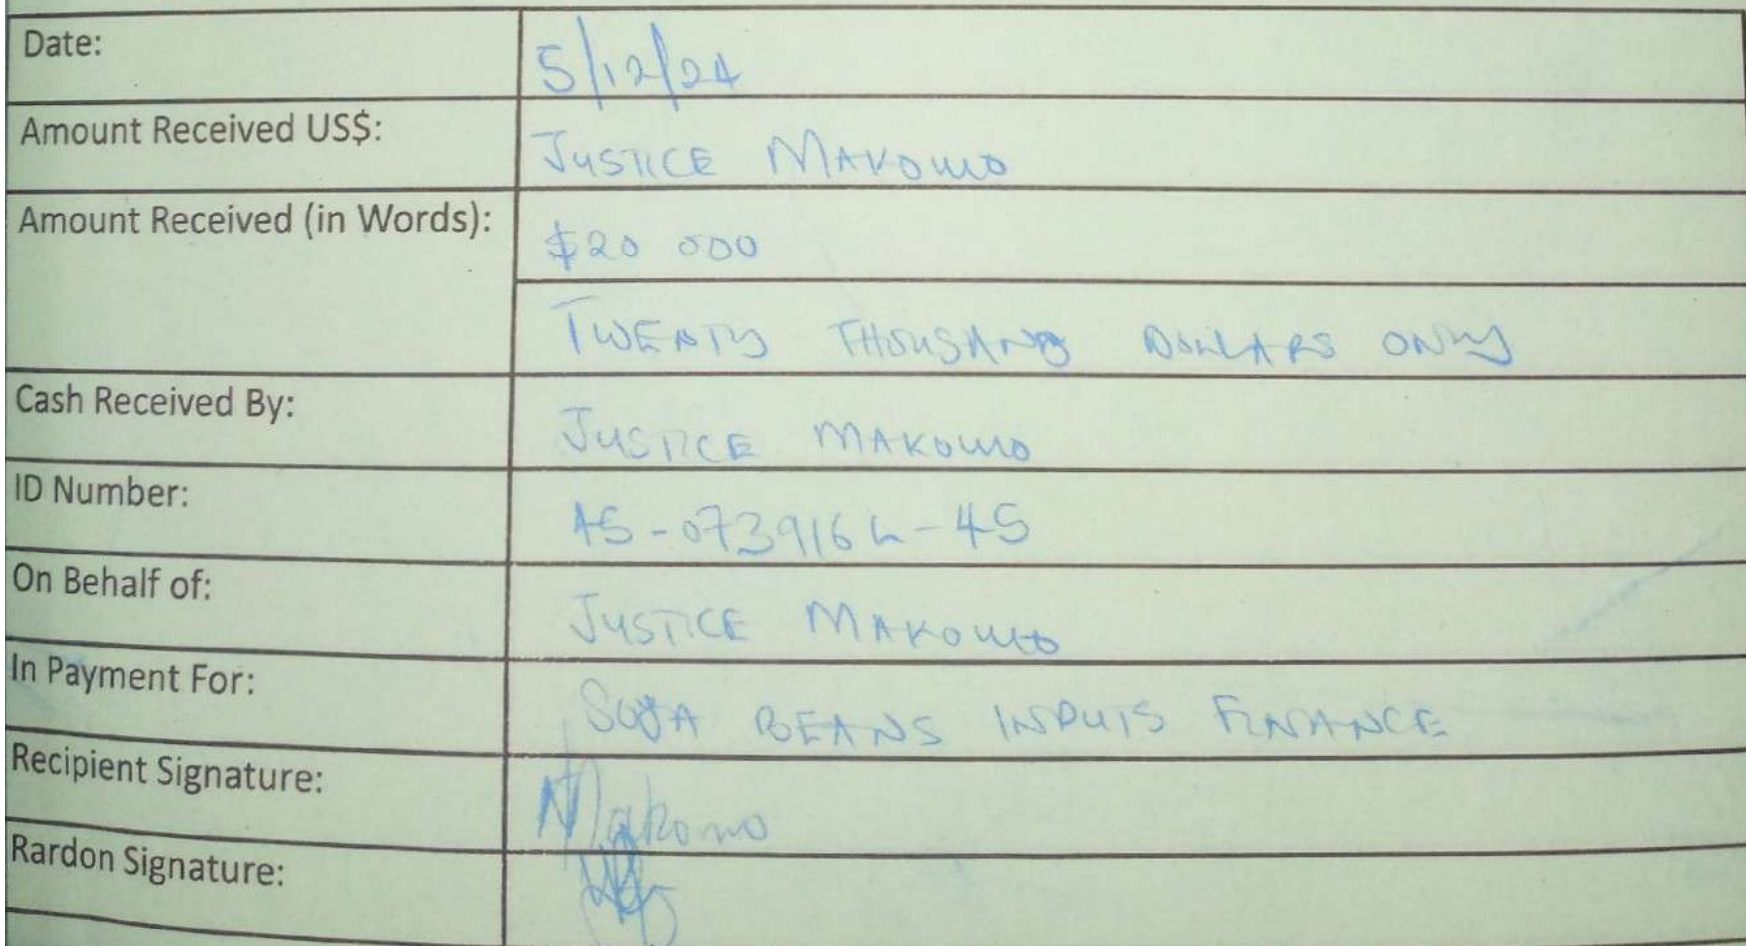 Date: 5/12/24
Amount Received US$: JUSTICE MAKOMO
Amount Received (in Words): $20 000
TWENTY THOUSAND DOLLARS ONLY
Cash Received By: JUSTICE MAKOMO
ID Number: 45-073916 L-45
On Behalf of: JUSTICE MAKOMO
In Payment For: SOYA BEANS INPUTS FINANCE
Recipient Signature: Makomo
Rardon Signature: